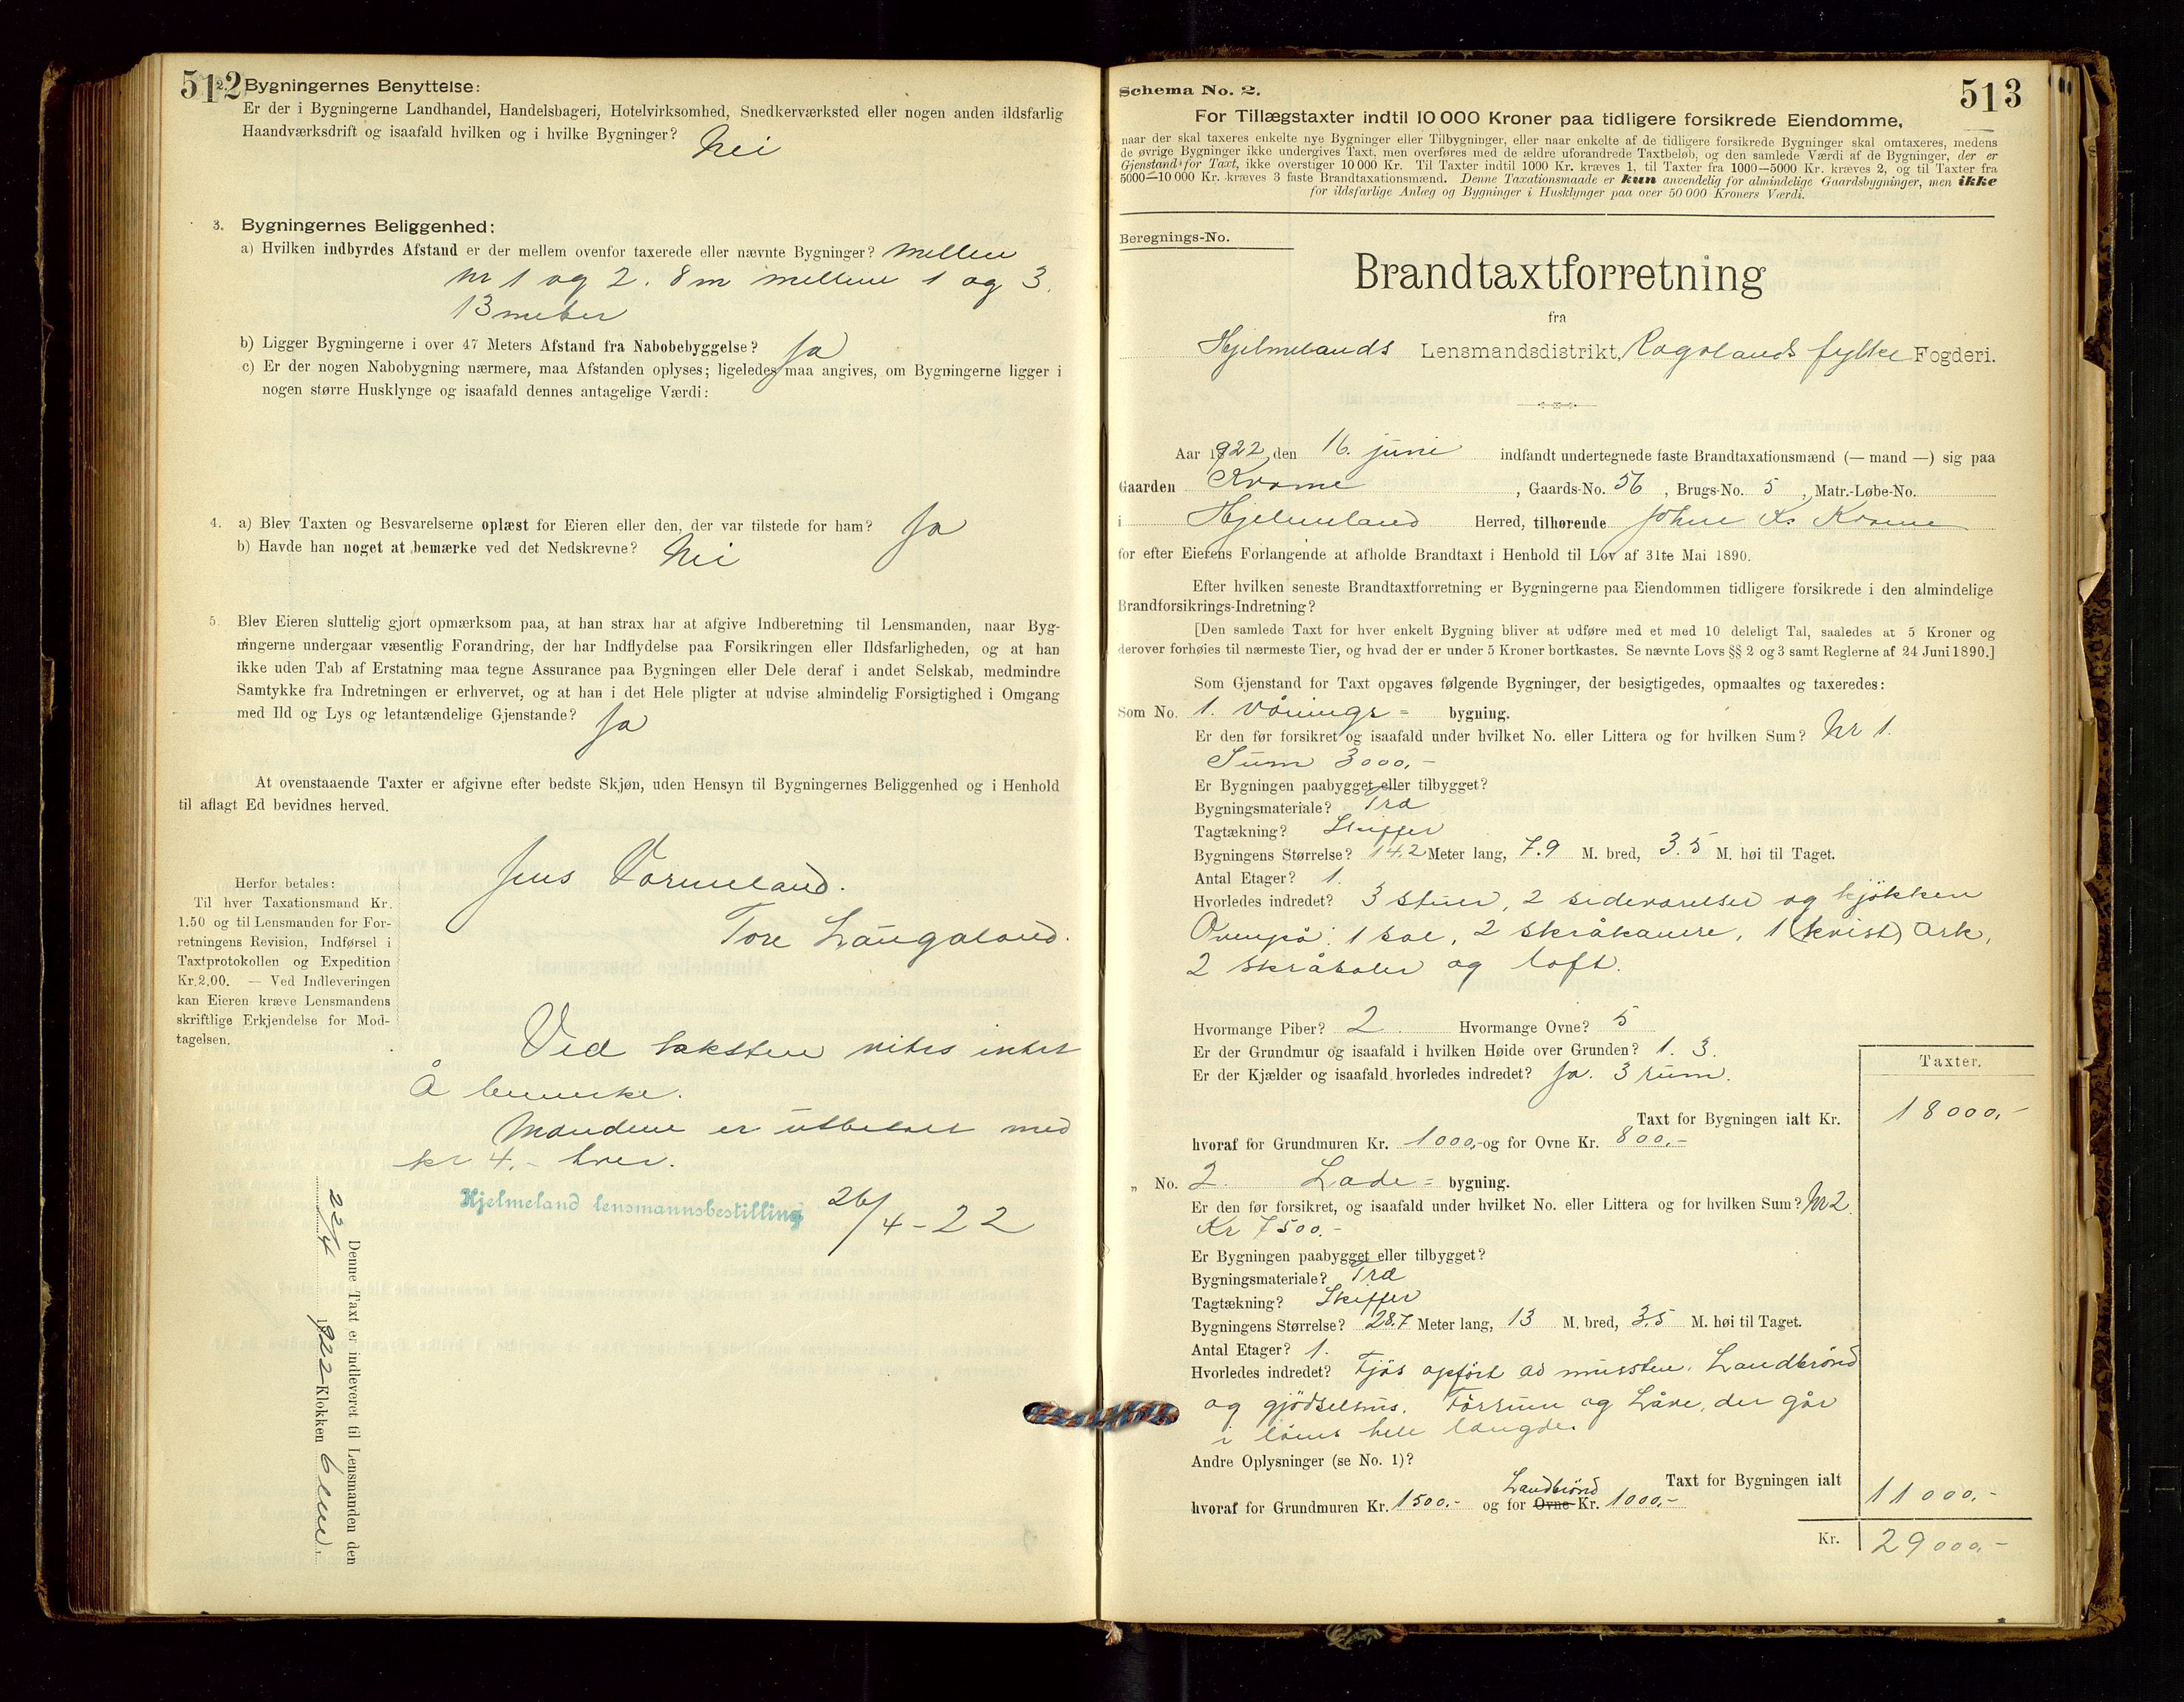 512
2. Bygningernes Benyttelse:
Er der i Bygningerne Landhandel, Handelsbageri, Hotelvirksomhed, Snedkerværksted eller nogen anden ildsfarlig
Haandværksdrift og isaafald hvilken og i hvilke Bygninger? Nei
3. Bygningernes Beliggenhed:
a) Hvilken indbyrdes Afstand er der mellem ovenfor taxerede eller nævnte Bygninger? mellem
nr 1 og 2. 8 m mellem 1 og 3.
13 meter
b) Ligger Bygningerne i over 47 Meters Afstand fra Nabobebyggelse? Ja
c) Er der nogen Nabobygning nærmere, maa Afstanden oplyses; ligeledes maa angives, om Bygningerne ligger i
nogen større Husklynge og isaafald dennes antagelige Værdi:
4. a) Blev Taxten og Besvarelserne oplæst for Eieren eller den, der var tilstede for ham? Ja
b) Havde han noget at bemærke ved det Nedskrevne? Nei
5. Blev Eieren sluttelig gjort opmærksom paa, at han strax har at afgive Indberetning til Lensmanden, naar Byg-
ningerne undergaar væsentlig Forandring, der har Indflydelse paa Forsikringen eller Ildsfarligheden, og at han
ikke uden Tab af Erstatning maa tegne Assurance paa Bygningen eller Dele deraf i andet Selskab, medmindre
Samtykke fra Indretningen er erhvervet, og at han i det Hele pligter at udvise almindelig Forsigtighed i Omgang
med Ild og Lys og letantændelige Gjenstande? Ja
At ovenstaaende Taxter er afgivne efter bedste Skjøn, uden Hensyn til Bygningernes Beliggenhed og i Henhold
til aflagt Ed bevidnes herved.
Jens Vormeland.
Tore Laugaland.
Herfor betales:
Til hver Taxationsmand Kr.
1.50 og til Lensmanden for For-
retningens Revision, Indførsel i
Taxtprotokollen og Expedition
Kr. 2,00. — Ved Indleveringen
kan Eieren kræve Lensmandens
skriftlige Erkjendelse for Mod-
tagelsen.
Ved taksten vites intet
Å bemerke.
Mændene er utbetalt med
kr 4.- hver.
Hjelmeland lensmannsbestilling 26/4-22
Denne Taxt er indleveret til Lensmanden den
22/4 1922 Klokken 6 em.
513
Schema No. 2.
For Tillægstaxter indtil 10 000 Kroner paa tidligere forsikrede Eiendomme,
naar der skal taxeres enkelte nye Bygninger eller Tilbygninger, eller naar enkelte af de tidligere forsikrede Bygninger skal omtaxeres, medens
de øvrige Bygninger ikke undergives Taxt, men overføres med de ældre uforandrede Taxtbeløb, og den samlede Værdi af de Bygninger, der er
Gjenstand for Taxt, ikke overstiger 10 000 Kr. Til Taxter indtil 1000 Kr. kræves 1, til Taxter fra 1000—5000 Kr. kræves 2, og til Taxter fra
5000—10 000 Kr. kræves 3 faste Brandtaxationsmænd. Denne Taxationsmaade er kun anvendelig for almindelige Gaardsbygninger, men ikke
for ildsfarlige Anlæg og Bygninger i Husklynger paa over 50 000 Kroners Værdi.
Beregnings-No.
Brandtaxtforretning
fra
Hjelmelands Lensmandsdistrikt, Rogalands fylke Fogderi.
Aar 1922, den 16. juni indfandt undertegnede faste Brandtaxationsmænd (— mand —) sig paa
Gaarden Kvame, Gaards-No. 56, Brugs-No. 5, Matr.-Løbe-No.
i Hjelmeland Herred, tilhørende Johne Ks Kvame
for efter Eierens Forlangende at afholde Brandtaxt i Henhold til Lov af 31te Mai 1890.
Efter hvilken seneste Brandtaxtforretning er Bygningerne paa Eiendommen tidligere forsikrede i den almindelige
Brandforsikrings-Indretning?
[Den samlede Taxt for hver enkelt Bygning bliver at udføre med et med 10 deleligt Tal, saaledes at 5 Kroner og
derover forhøies til nærmeste Tier, og hvad der er under 5 Kroner bortkastes. Se nævnte Lovs §§ 2 og 3 samt Reglerne af 24 Juni 1890.]
Som Gjenstand for Taxt opgaves følgende Bygninger, der besigtigedes, opmaaltes og taxeredes:
Som No. 1. Vånings= bygning.
Er den før forsikret og isaafald under hvilket No. eller Littera og for hvilken Sum? Nr 1.
Sum 3000,-
Er Bygningen paabygget eller tilbygget?
Bygningsmateriale? Træ
Tagtækning? Skiffer
Bygningens Størrelse? 14.2 Meter lang, 7.9 M. bred, 3.5 M. høi til Taget.
Antal Etager? 1.
Hvorledes indredet? 3 stuer, 2 sideværelser og kjøkken
Ovenpå: 1 sal, 2 skråkamre, 1 (kvist) ark,
2 skråboler og loft.
Hvormange Piber? 2. Hvormange Ovne? 5
Er der Grundmur og isaafald i hvilken Høide over Grunden? 1. 3.
Er der Kjælder og isaafald hvorledes indredet? Ja. 3 rum.
Taxter.
Taxt for Bygningen ialt Kr. 18000,-
hvoraf for Grundmuren Kr. 1000,- og for Ovne Kr. 800.-
„ No. 2. Lade= bygning.
Er den før forsikret, og isaafald under hvilket No. eller Littera og for hvilken Sum? Nr 2.
Kr 7500.-
Er Bygningen paabygget eller tilbygget?
Bygningsmateriale? Træ
Tagtækning? Skiffer
Bygningens Størrelse? 28.7 Meter lang, 13 M. bred, 3.5 M. høi til Taget.
Antal Etager? 1.
Hvorledes indredet? Fjøs opført av mursten. Landbrønd
og gjødselhus. Forrum og Låve, der går
i løens hele længde.
Andre Oplysninger (se No. 1)?
Taxt for Bygningen ialt 11000.-
hvoraf for Grundmuren Kr. 1500.- og for Ovne Landbrønd Kr. 1000.-
Kr. 29000.-